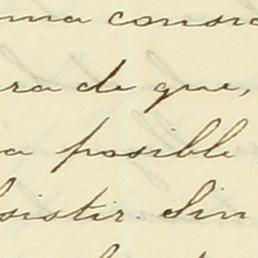 ma consid
ra de que,
a posible
sistir. Sin